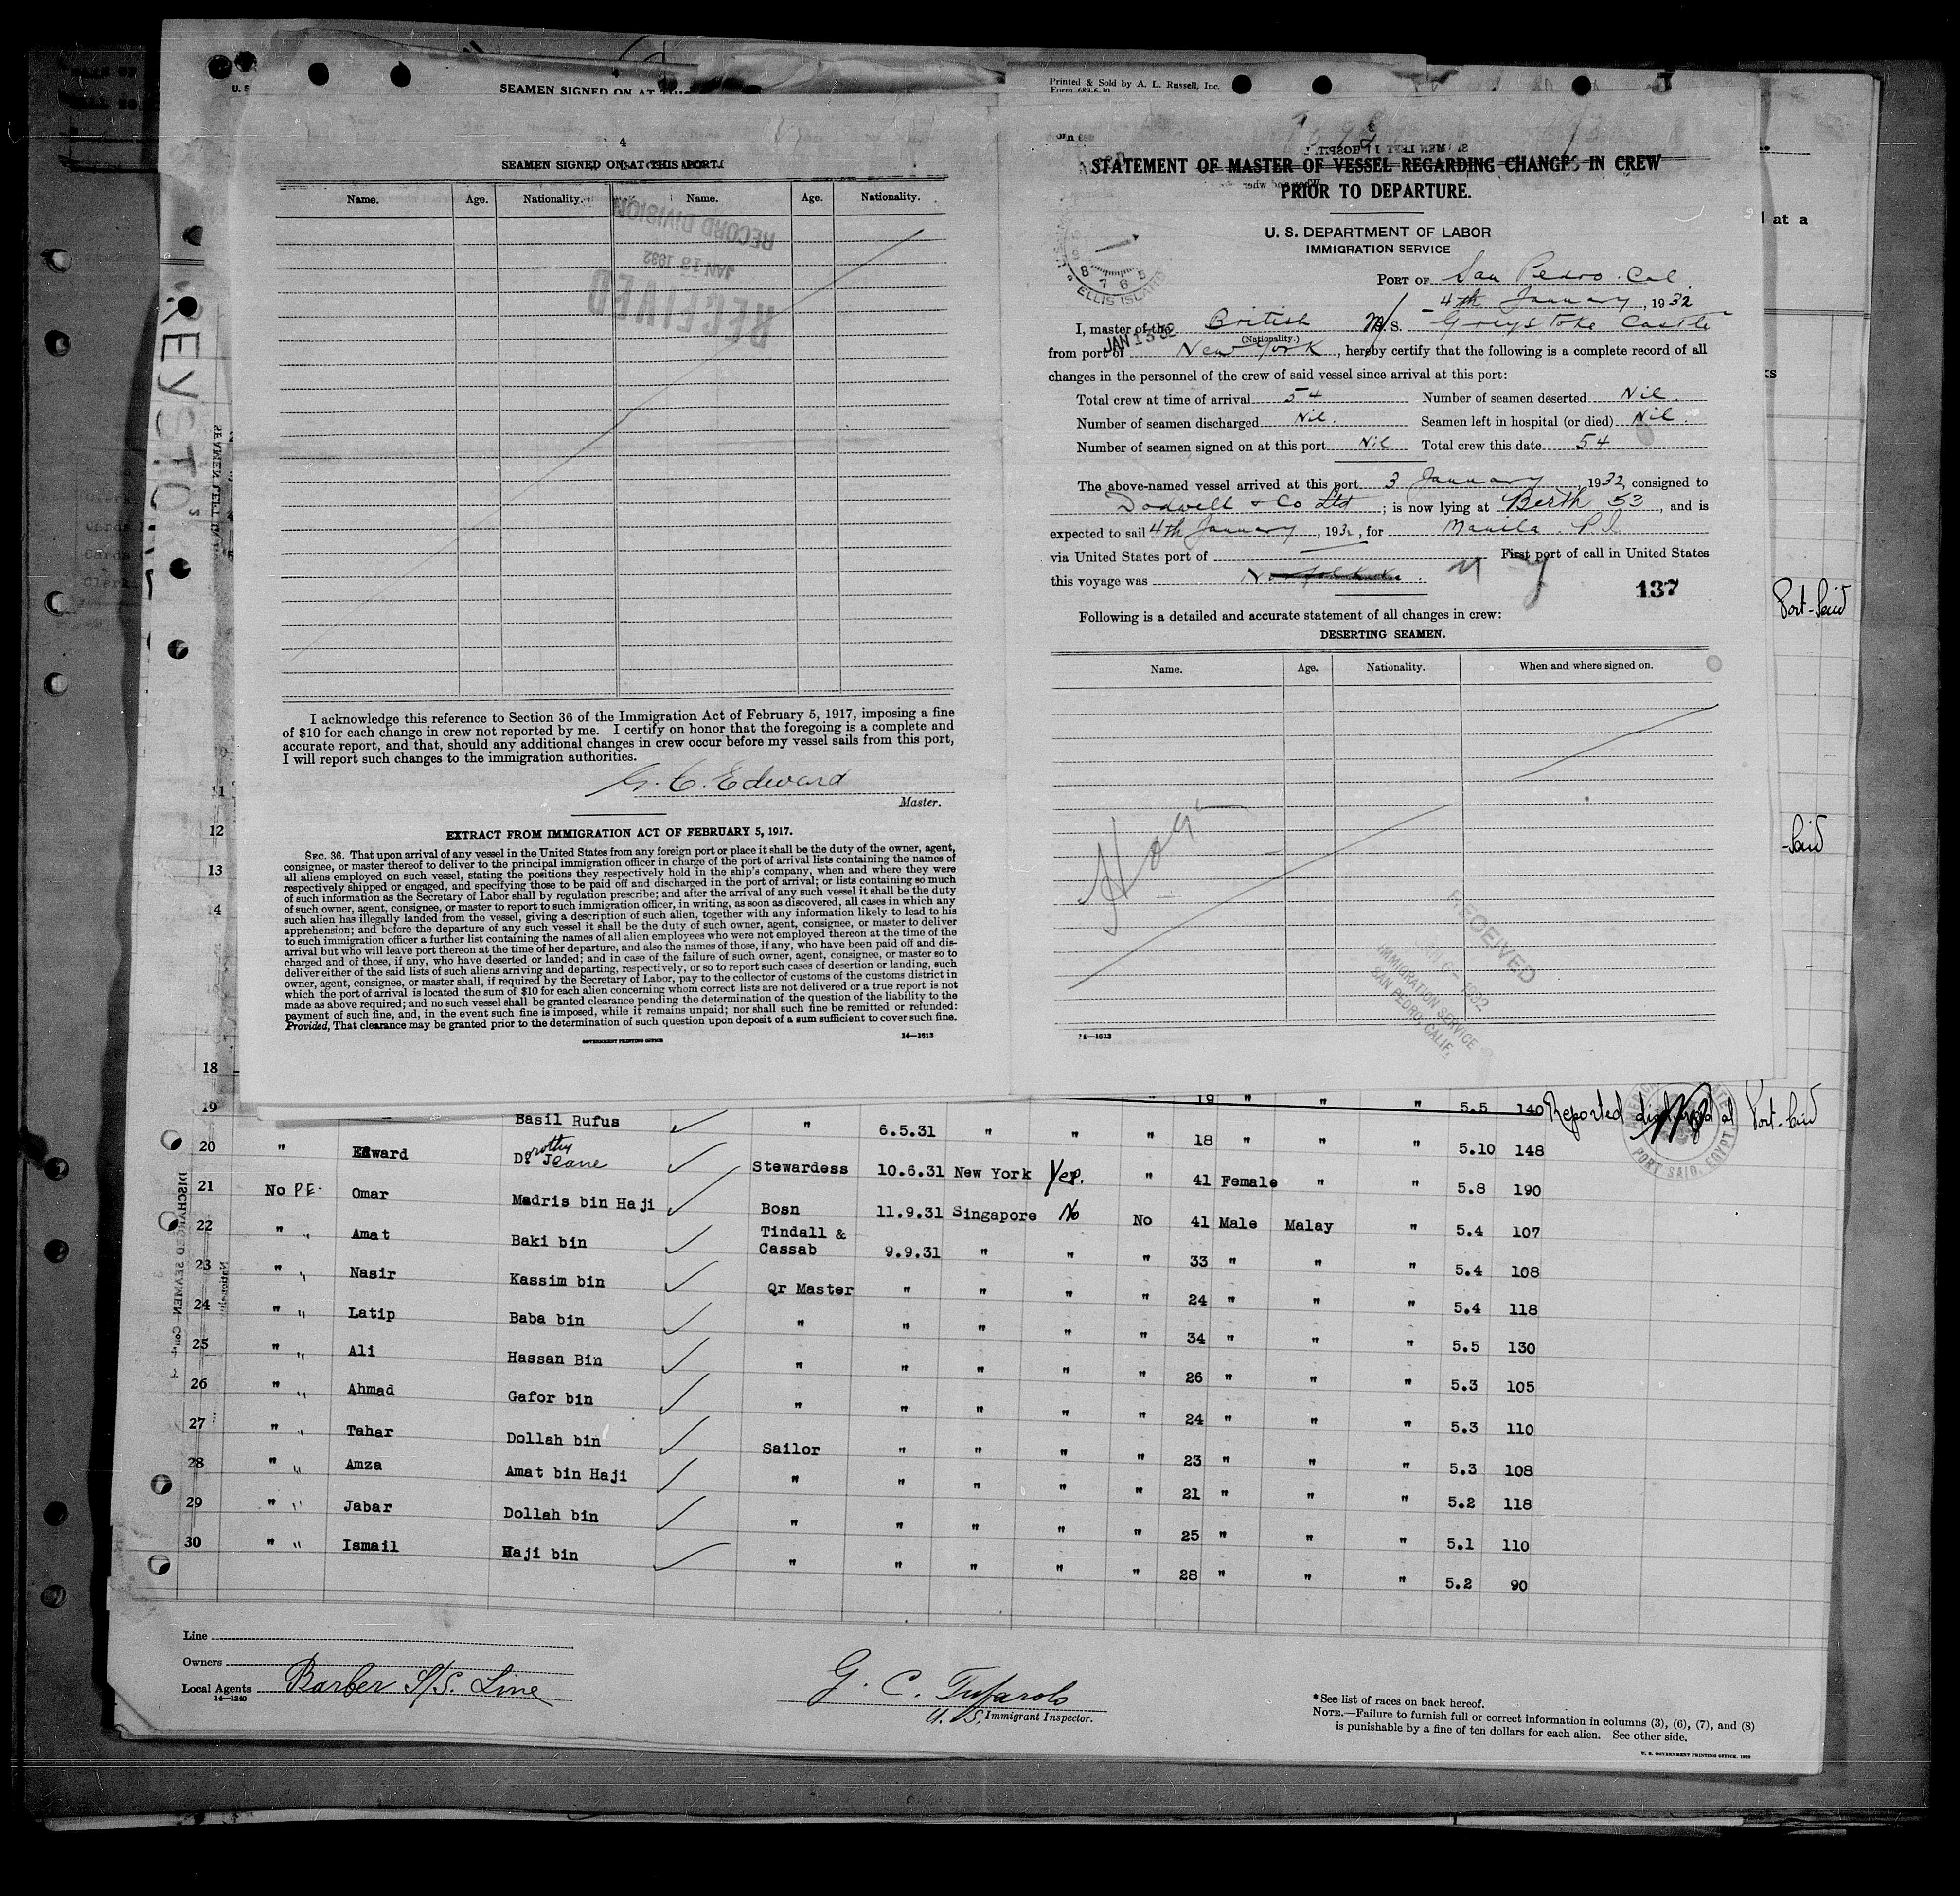 SEAMEN SIGNED ON AT THIS
4
SEAMEN SIGNED ON AT THIS PORT.
Name. Age. Nationality. Name. Age. Nationality.
RECORD DIVISION
JAN 18 1932
RECEIVED
I acknowledge this reference to Section 36 of the Immigration Act of February 5, 1917, imposing a fine
of $10 for each change in crew not reported by me. I certify on honor that the foregoing is a complete and
accurate report, and that, should any additional changes in crew occur before my vessel sails from this port,
I will report such changes to the immigration authorities.
G. C. Edward
Master.
EXTRACT FROM IMMIGRATION ACT OF FEBRUARY 5, 1917.
SEC. 36. That upon arrival of any vessel in the United States from any foreign port or place it shall be the duty of the owner, agent,
consignee, or master thereof to deliver to the principal immigration officer in charge of the port of arrival lists containing the names of
all aliens employed on such vessel, stating the positions they respectively hold in the ship's company, when and where they were
respectively shipped or engaged, and specifying those to be paid off and discharged in the port of arrival; or lists containing so much
of such information as the Secretary of Labor shall by regulation prescribe; and after the arrival of any such vessel it shall be the duty
of such owner, agent, consignee, or master to report to such immigration officer, in writing, as soon as discovered, all cases in which any
such alien has illegally landed from the vessel, giving a description of such alien, together with any information likely to lead to his
apprehension; and before the departure of any such vessel it shall be the duty of such owner, agent, consignee, or master to deliver
to such immigration officer a further list containing the names of all alien employees who were not employed thereon at the time of the
arrival but who will leave port thereon at the time of her departure, and also the names of those, if any, who have been paid off and dis-
charged and of those, if any, who have deserted or landed; and in case of the failure of such owner, agent, consignee, or master so to
deliver either of the said lists of such aliens arriving and departing, respectively, or so to report such cases of desertion or landing, such
owner, agent, consignee, or master shall, if required by the Secretary of Labor, pay to the collector of customs of the customs district in
which the port of arrival is located the sum of $10 for each alien concerning whom correct lists are not delivered or a true report is not
made as above required; and no such vessel shall be granted clearance pending the determination of the question of the liability to the
payment of such fine, and, in the event such fine is imposed, while it remains unpaid; nor shall such fine be remitted or refunded:
Provided, That clearance may be granted prior to the determination of such question upon deposit of a sum sufficient to cover such fine.
GOVERNMENT PRINTING OFFICE 14—1613
Printed & Sold by A. L. Russell, Inc.
Form 689-6-30
STATEMENT OF MASTER OF VESSEL REGARDING CHANGES IN CREW
PRIOR TO DEPARTURE.
U. S. DEPARTMENT OF LABOR
IMMIGRATION SERVICE
ELLIS ISLAND
JAN 13 32
PORT OF San Pedro. Cal
4th January, 1932
I, master of the British M/S. Greystoke Castle
(Nationality.)
from port of New York, hereby certify that the following is a complete record of all
changes in the personnel of the crew of said vessel since arrival at this port:
Total crew at time of arrival 54 Number of seamen deserted Nil.
Number of seamen discharged Nil. Seamen left in hospital (or died) Nil.
Number of seamen signed on at this port Nil Total crew this date 54
The above-named vessel arrived at this port 3 January, 1932, consigned to
Dodwell & Co Ltd; is now lying at Berth 53, and is
expected to sail 4th January, 1932, for Manila. P.I.
via United States port of First port of call in United States
this voyage was N Y
137
Following is a detailed and accurate statement of all changes in crew:
DESERTING SEAMEN.
Name. Age. Nationality. When and where signed on.
RECEIVED
1932
IMMIGRATION SERVICE
SAN PEDRO, CALIF.
14—1613
at a
Port-Said
-Said
11
12
13
14
18
19 Basil Rufus " 6.5.31 " " " 18 " " " 5.10 148
19 " " " 5.5 140 Reported discharged at Port-Said
PORT SAID, EGYPT
20 " Edward Dorothy Jeane Stewardess 10.6.31 New York Yes. " 41 Female " " 5.8 190
21 No P.E. Omar Madris bin Haji Bosn 11.9.31 Singapore No No 41 Male Malay " 5.4 107
22 " " Amat Baki bin Tindall & Cassab 9.9.31 " " " 33 " " " 5.4 108
23 " " Nasir Kassim bin Qr Master " " " " 24 " " " 5.4 118
24 " " Latip Baba bin " " " " " 34 " " " 5.5 130
25 " " Ali Hassan Bin " " " " " 26 " " " 5.3 105
26 " " Ahmad Gafor bin " " " " " 24 " " " 5.3 110
27 " " Tahar Dollah bin Sailor " " " " 23 " " " 5.3 108
28 " " Amza Amat bin Haji " " " " " 21 " " " 5.2 118
29 " " Jabar Dollah bin " " " " " 25 " " " 5.1 110
30 " " Ismail Haji bin " " " " " 28 " " " 5.2 90
Line
Owners
Local Agents Barber S/S. Line
14—1240
G. C. Tufarolo
U. S. Immigrant Inspector.
*See list of races on back hereof.
NOTE.—Failure to furnish full or correct information in columns (3), (6), (7), and (8)
is punishable by a fine of ten dollars for each alien. See other side.